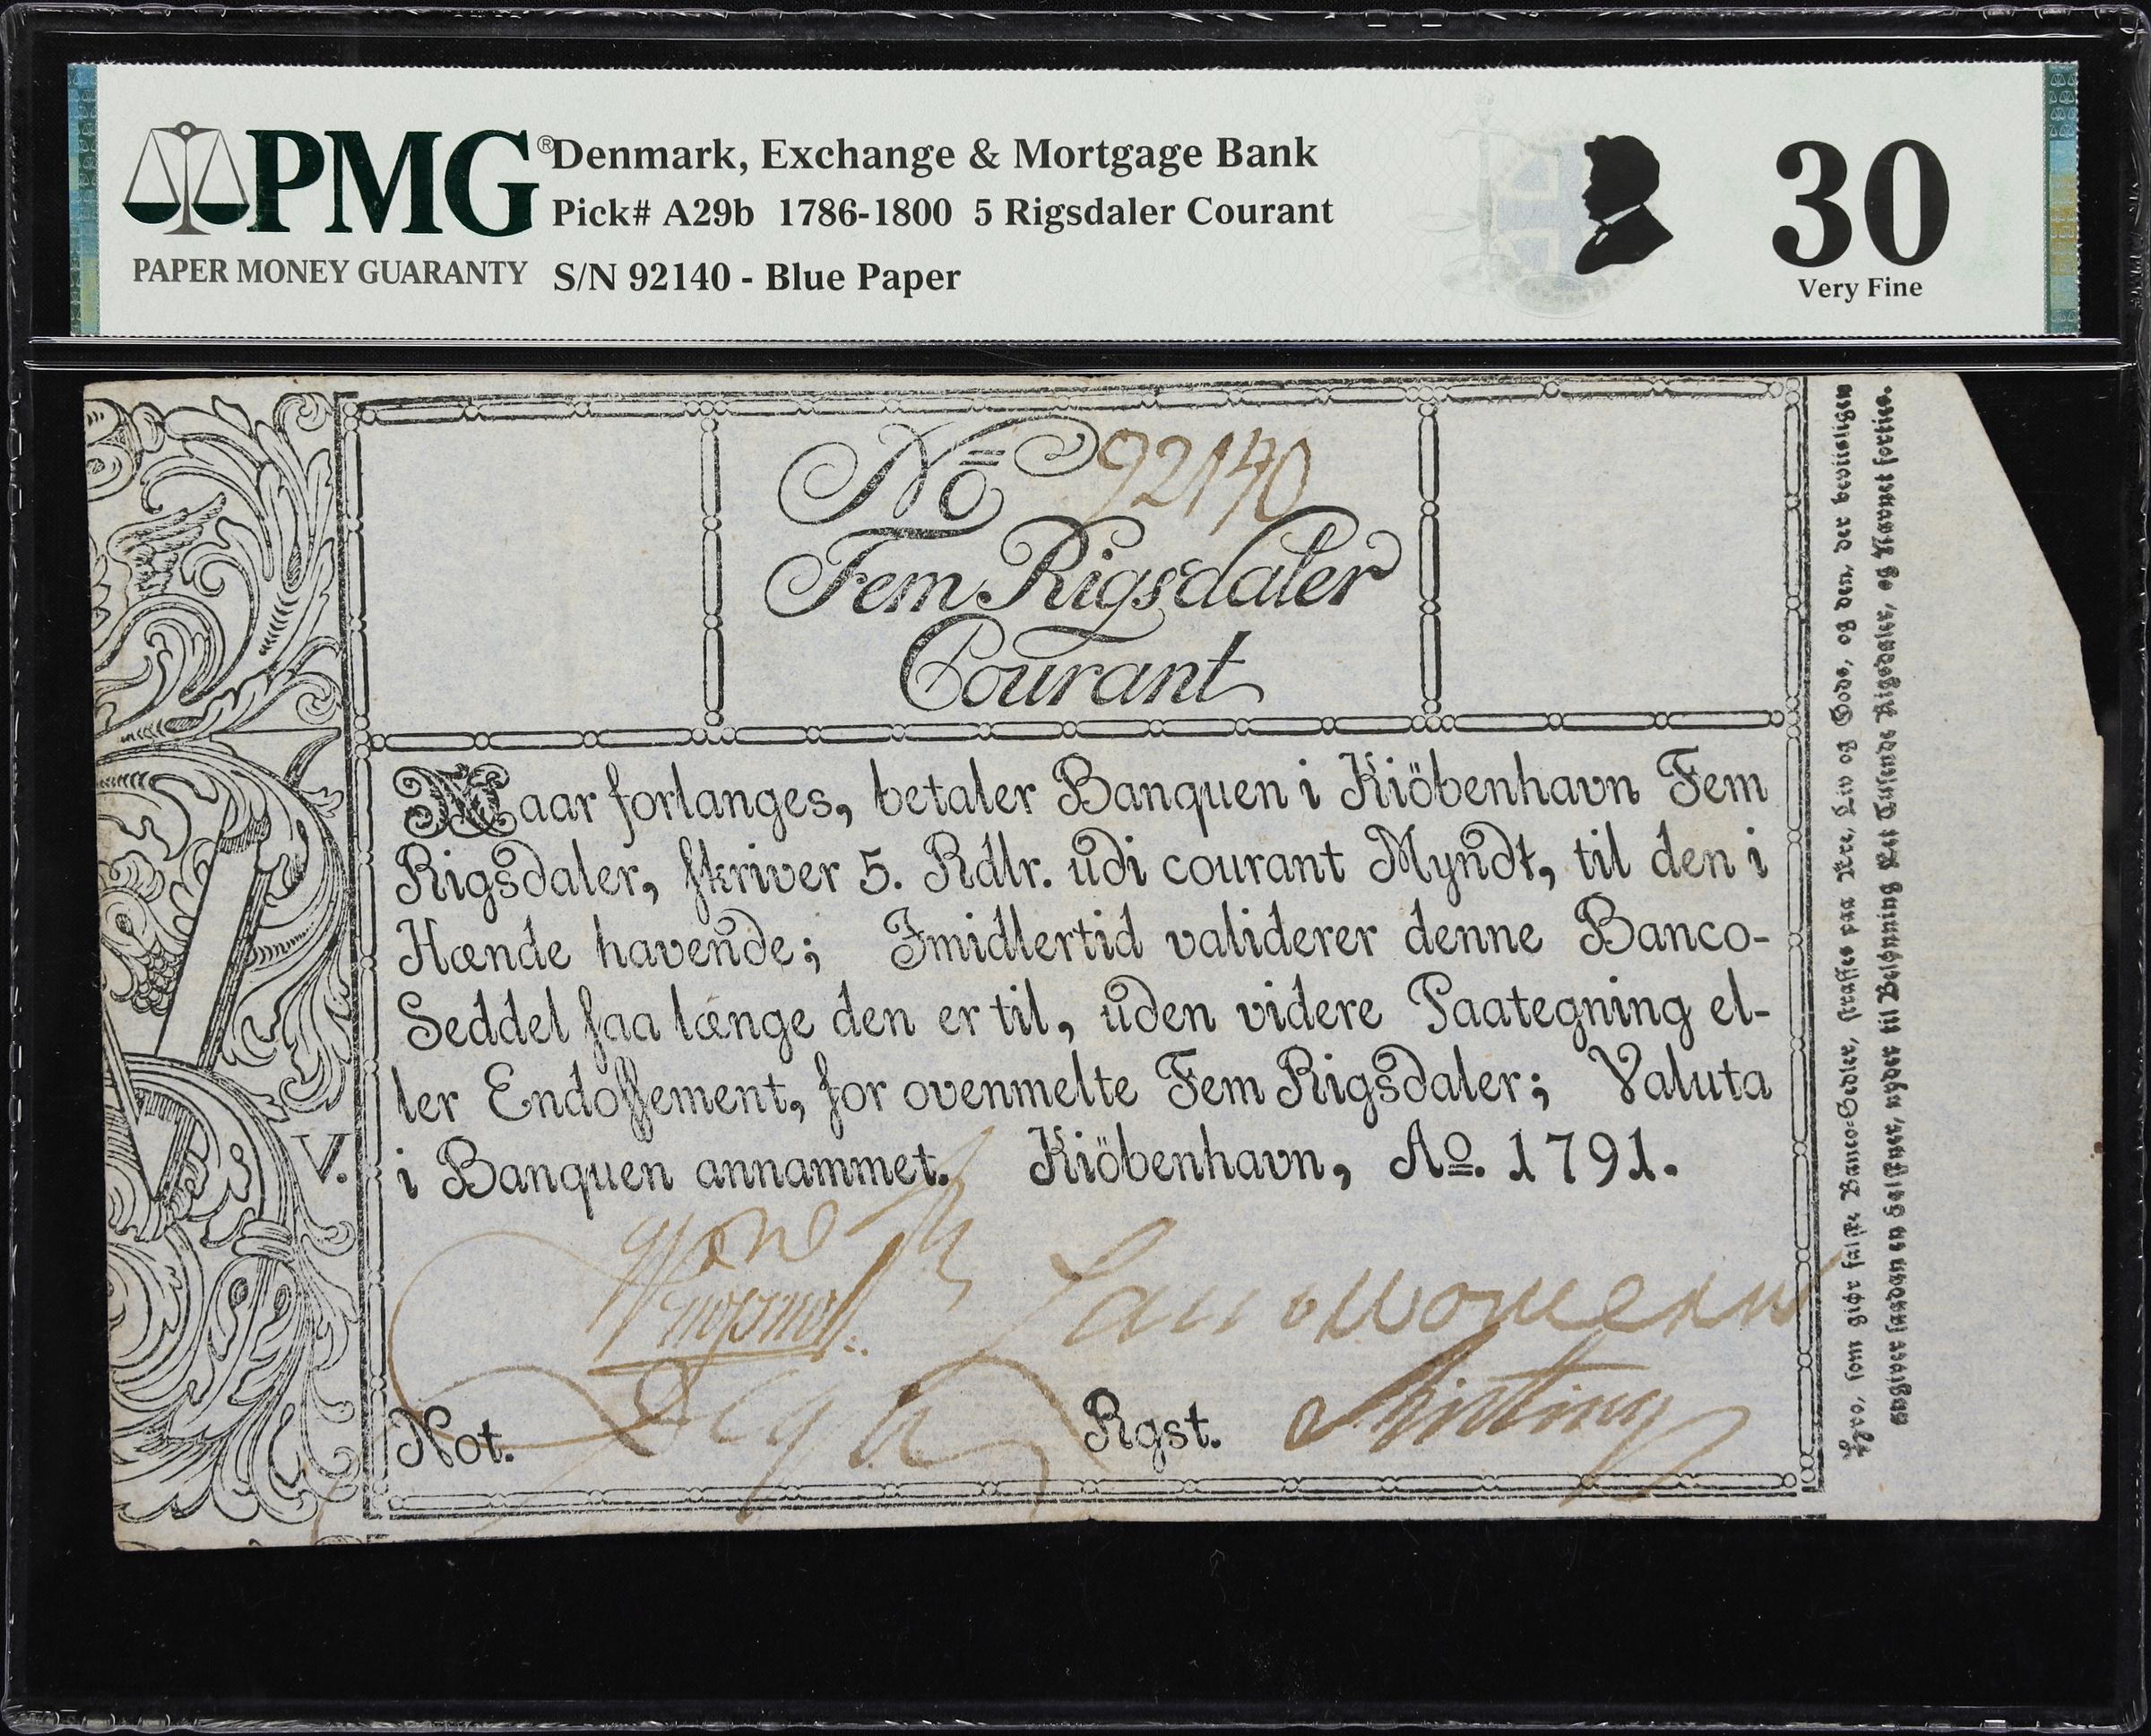 PMG®
PAPER MONEY GUARANTY
Denmark, Exchange & Mortgage Bank
Pick# A29b 1786-1800 5 Rigsdaler Courant
S/N 92140 - Blue Paper
30
Very Fine
No 92140
Fem Rigsdaler
Courant
Naar forlanges, betaler Banquen i Kiöbenhavn Fem
Rigsdaler, skriver 5. Rdlr. udi courant Myndt, til den i
Hænde havende; Imidlertid validerer denne Banco-
Seddel saa længe den er til, uden videre Paategning el-
ler Endossement, for ovenmelte Fem Rigsdaler; Valuta
i Banquen annammet. Kiöbenhavn, Ao. 1791.
V.
Not.
Rgst.
Hvo, som giør falske Banco-Sedler, straffes paa Ære, Liv og Gods, og den, der beviisligen
angiver saadan en Falskner, nyder til Belønning Tusinde Rigsdaler, og Navnet forties.